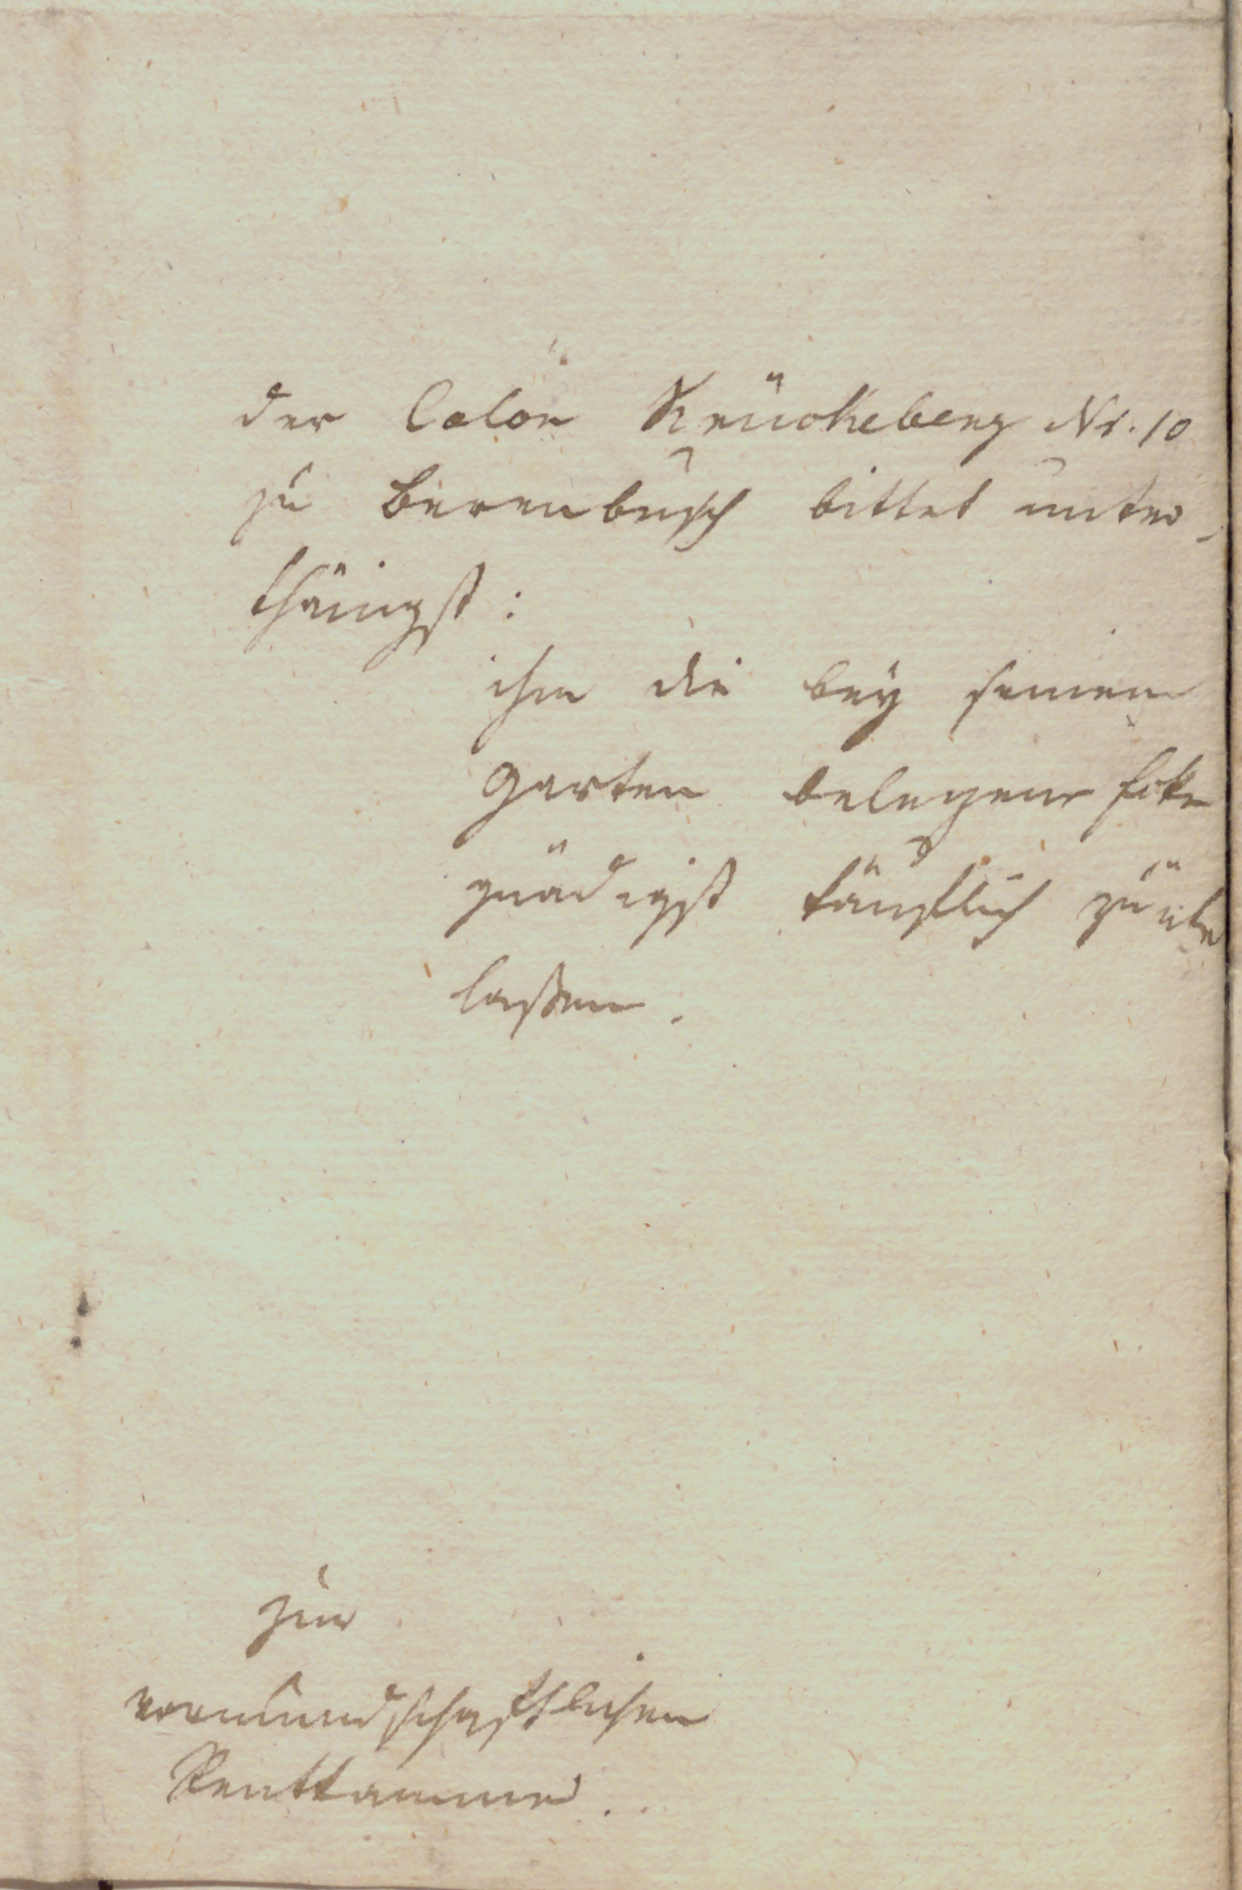 der Colon Krückeberg Nr. 10
zu Berenbusch bittet unter-
thänigst:
ihm die bey seinem
Garten belegene
gnädigst käuflich zu übe
laßen.
zur
vormundschaftlichen
Rentkammer.